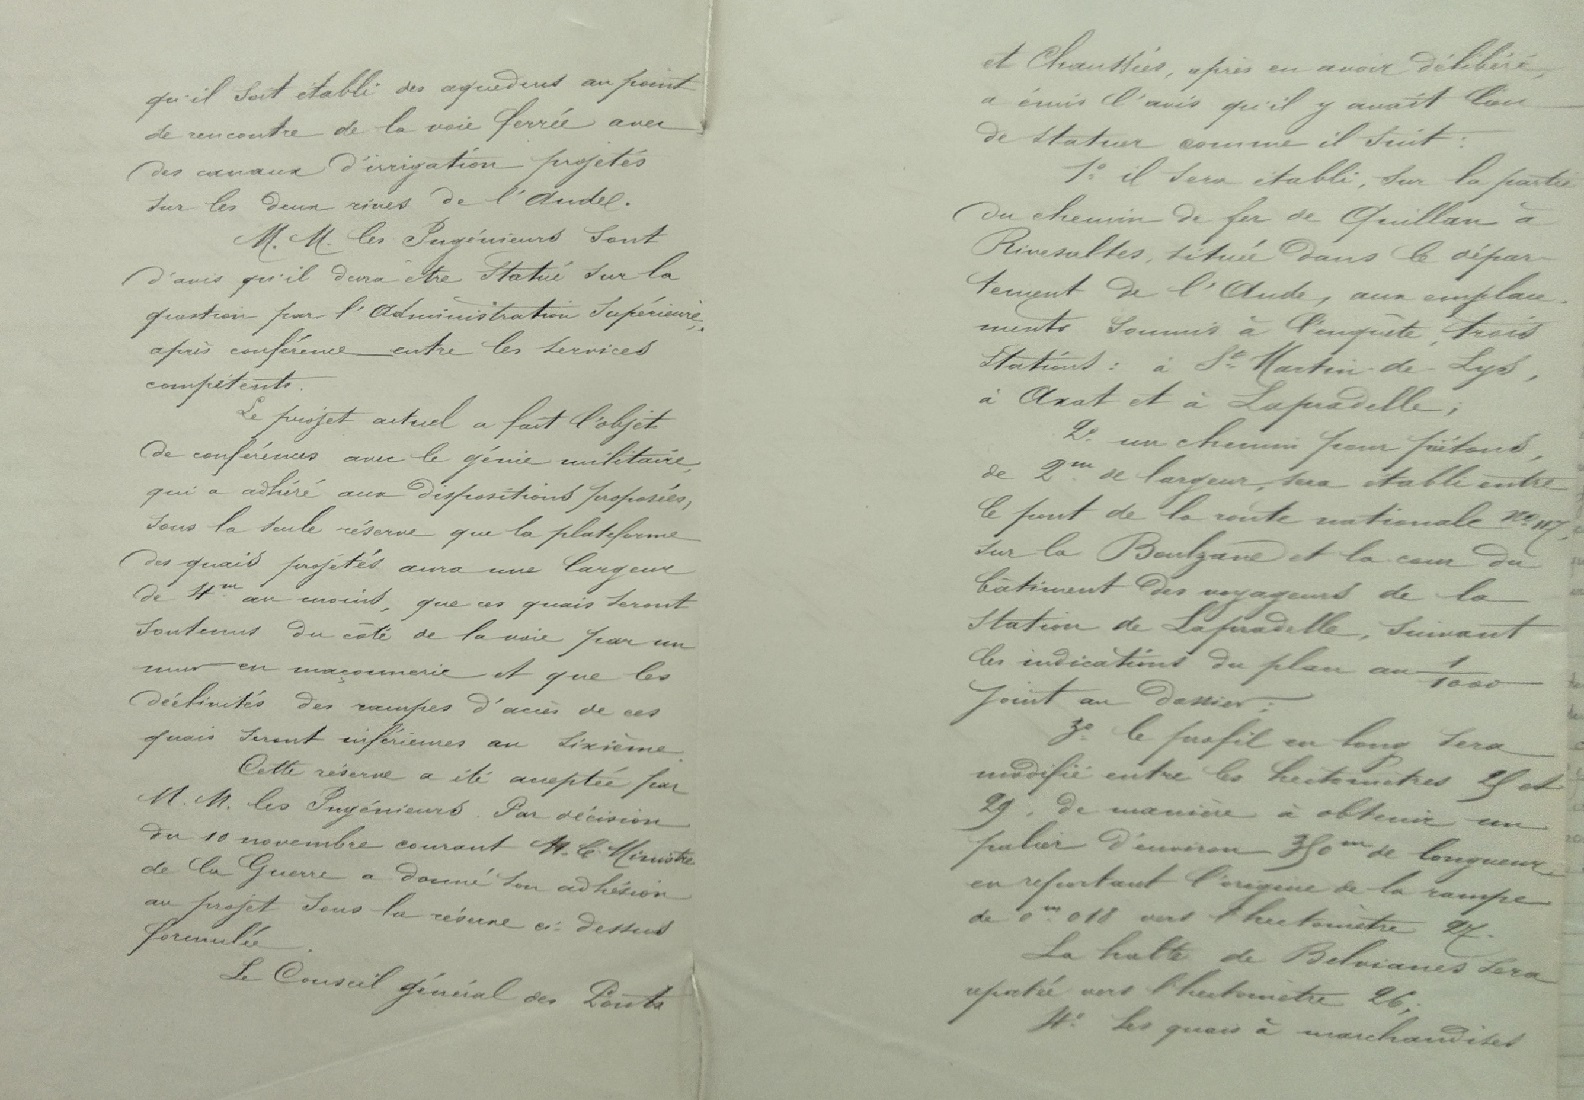 qu'il soit établi des aqueducs au point
de rencontre de la voie ferrée avec
des canaux d'irrigation projetés
sur les deux rives de l'Aude.
M. M. les Ingénieurs sont
d'avis qu'il devra être statué sur la
question par l'Administration Supérieure,
après conférence entre les services
compétents.
Le projet actuel a fait l'objet
de conférences avec le génie militaire,
qui a adhéré aux dispositions proposées,
sous la seule réserve que la plateforme
des quais projetés aura une largeur
de 4m au moins, que ces quais seront
soutenus du côté de la voie par un
mur en maçonnerie et que les
déclivités des rampes d'accès de ces
quais seront inférieures au sixième.
Cette réserve a été acceptée par
M. M. les Ingénieurs. Par décision
du 10 novembre courant M. le Ministre
de la Guerre a donné son adhésion
au projet sous la réserve ci-dessus
formulée.
Le Conseil général des Ponts
et Chaussées, après en avoir délibéré,
a émis l'avis qu'il y avait lieu
de statuer comme il suit :
1º il sera établi, sur la partie
du chemin de fer de Quillan à
Rivesaltes, située dans le dépar-
tement de l'Aude, aux emplace-
ments soumis à l'enquête, trois
stations : à St Martin-de-Lys,
à Axat et à Lapradelle ;
2º un chemin pour piétons,
de 2m de largeur, sera établi entre
le pont de la route nationale nº 117,
sur la Boulzane et la cour du
bâtiment des voyageurs de la
station de Lapradelle, suivant
les indications du plan au 1/1000
joint au dossier ;
3º le profil en long sera
modifié entre les hectomètres 25 et
29, de manière à obtenir un
palier d'environ 350m de longueur
en reportant l'origine de la rampe
de 0m 018 vers l'hectomètre 27.
La halte de Belvianes sera
reportée vers l'hectomètre 26 ;
4º les quais à marchandises